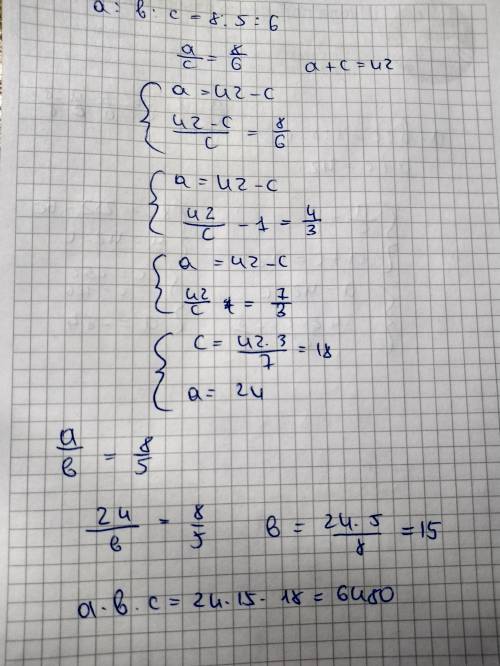 a : b : c = 8 : 5 : 6
a/c = 8/6    a + c = 42
{ a = 42 - c
(42 - c)/c = 8/6
{ a = 42 - c
42/c - 1 = 4/3
{ a = 42 - c
42/c = 7/3
{ c = (42 · 3)/7 = 18
a = 24
a/b = 8/5
24/b = 8/5    b = (24 · 5)/8 = 15
a · b · c = 24 · 15 · 18 = 6480